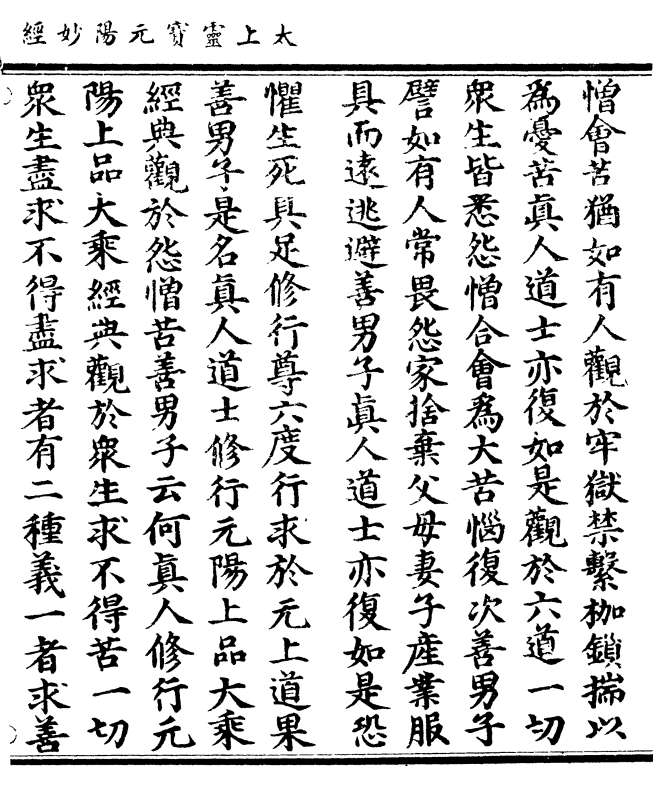 太上靈寳元陽妙經
憎會苦猶如有人觀於牢獄禁繫枷鎖揣以
為憂苦真人道士亦復如是觀於六道一切
衆生皆悉怨憎合會為大苦惱復次善男子
譬如有人常畏怨家捨棄父母妻子產業服
具而遠逃避善男子真人道士亦復如是恐
懼生死具足修行尊六度行求於元上道果
善男子是名真人道士修行元陽上品大乘
經典觀於怨憎苦善男子云何真人修行元
陽上品大乘經典觀於衆生求不得苦一切
衆生盡求不得盡求者有二種義一者求善